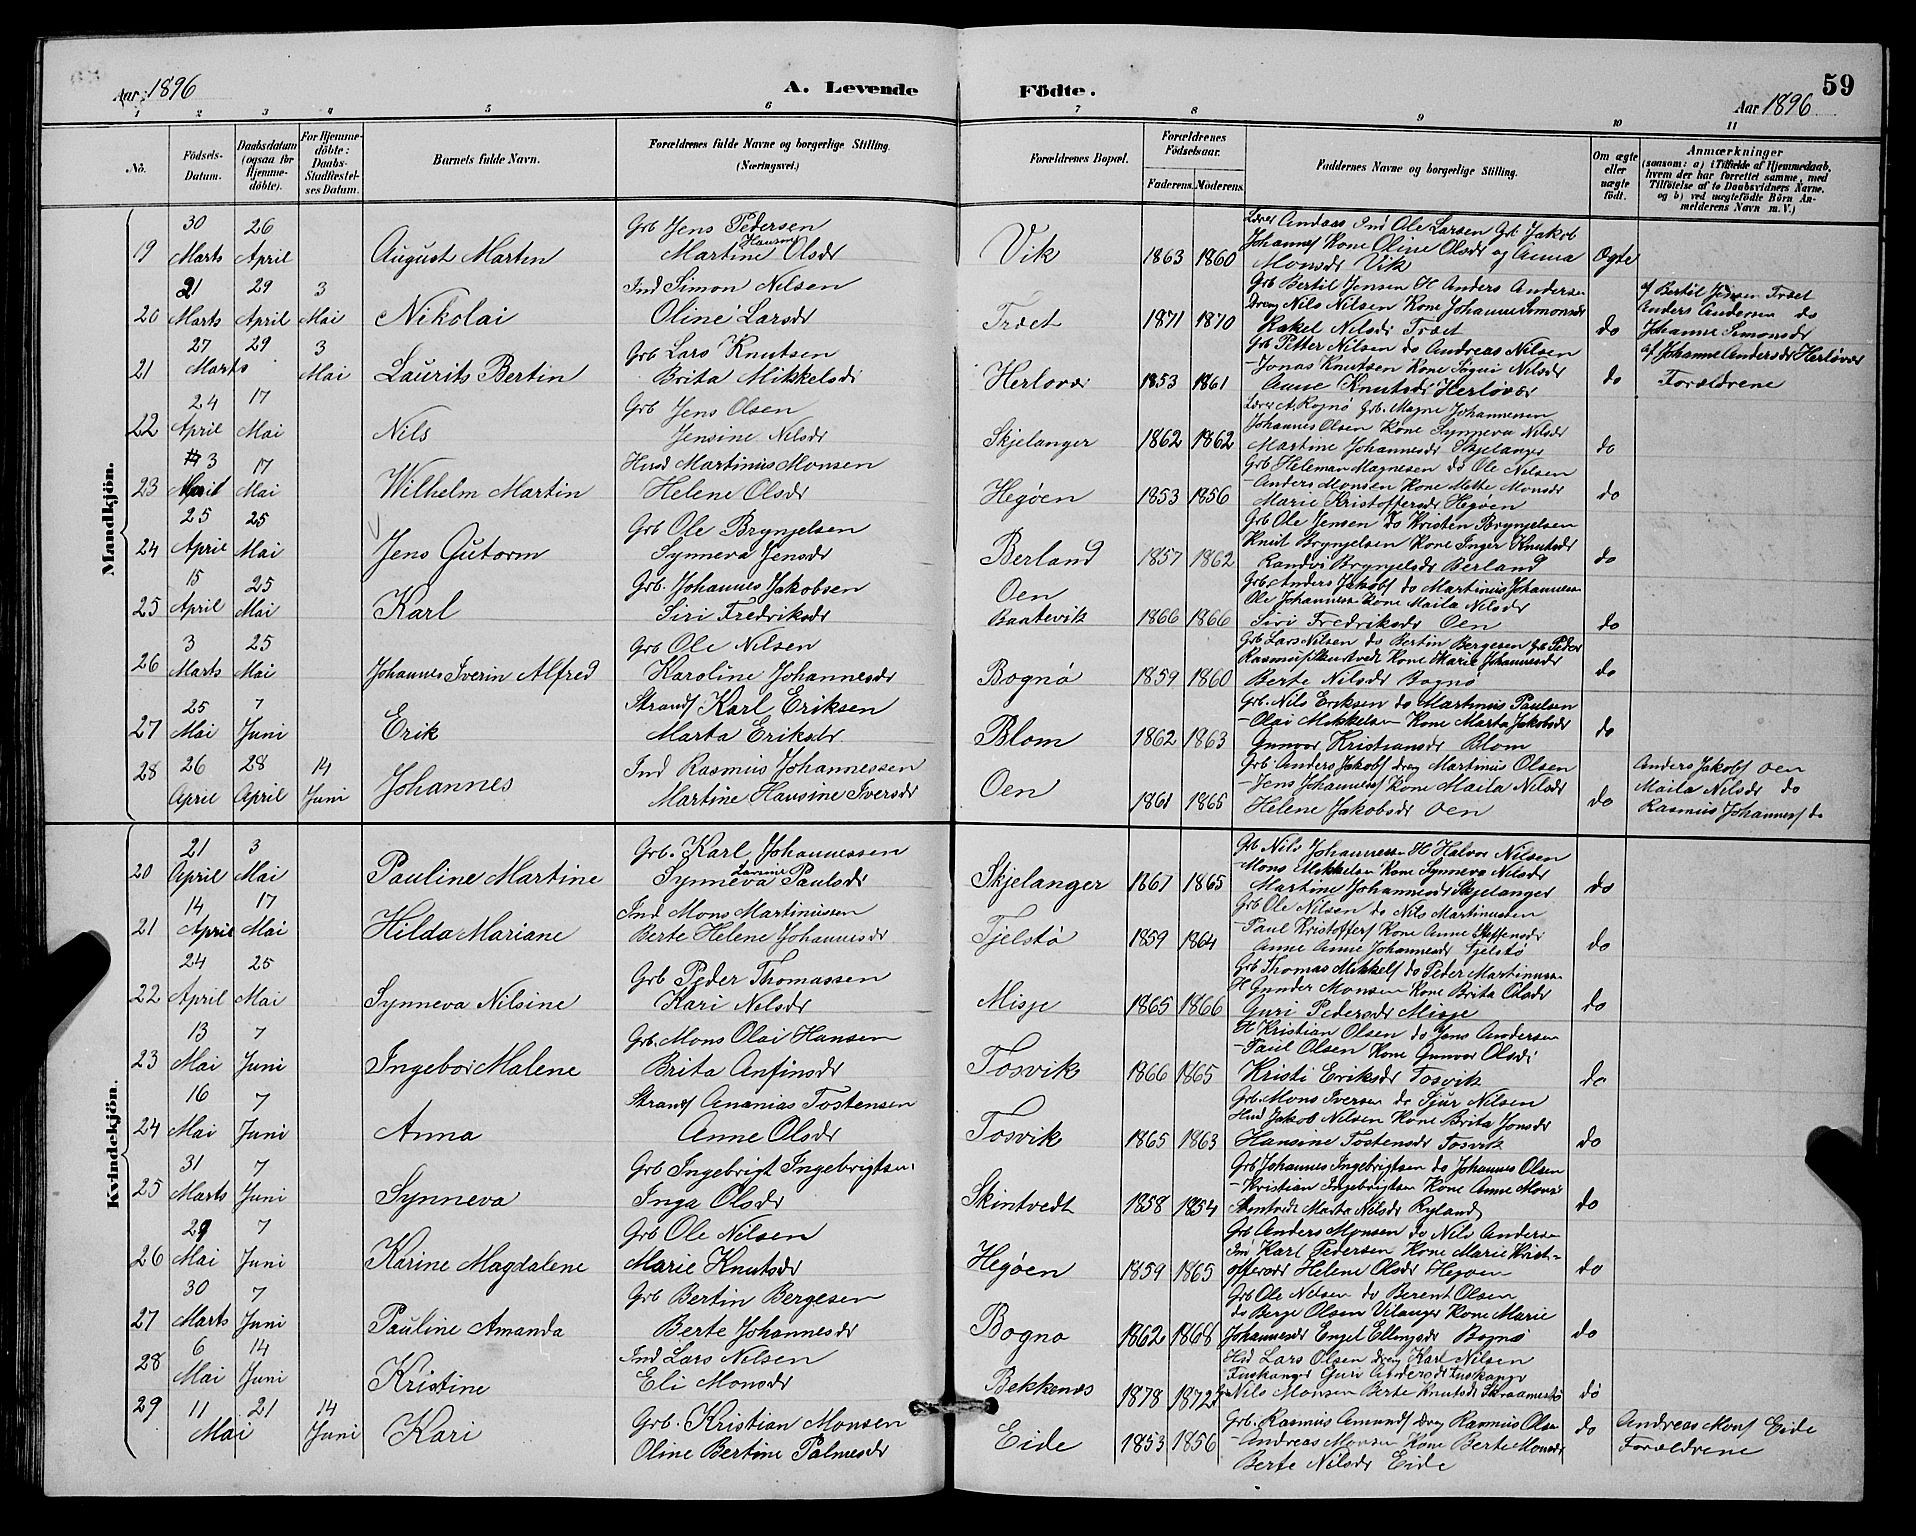 Aar 1896
A. Levende
Födte.
59
Aar 1896
1 2 3 4 5 6 7 8 9 10 11
No.
Födsels-Datum.
Daabsdatum (ogsaa för Hjemmedöbte).
For Hjemmedöbte: Daabs-Stadfæstelses Datum.
Barnets fulde Navn.
Forældrenes fulde Navne og borgerlige Stilling. (Næringsvei.)
Forældrenes Bopæl.
Forældrenes Födselsaar.
Faderens. Moderens.
Faddernes Navne og borgerlige Stilling.
Om ægte eller uægte födt.
Anmærkninger (saasom: a) i Tilfælde af Hjemmedaab, hvem der har forrettet samme, med Tilföielse af to Daabsvidners Navne, og b) ved uægtefödte Börn Anmelderens Navn m. V.)
Mandkjön.
19 30 Marts 26 April August Martin
Grb Jens Pedersen
Martine Olsdr
Vik 1863 1860
Lærer Andaas Ind Ole Larsen Grb Jakob
Johannes Kone Oline Olsdr og Anna
Monsdr Vik
Ægte
20 21 Marts 29 April 3 Mai Nikolai
Ind Simon Nilsen
Oline Larsdr
Træet 1871 1870
Grb Bertil Jensen H Anders Andersen
Dreng Nils Nilsen Kone Johanne Simonsdr
Rakel Nilsdr Træet
do
af Bertil Jensen Træet
Anders Andersen do
Johanne Simonsdr
21 27 29 Marts 3 Mai Laurits Bertin
Grb Lars Knutsen
Brita Mikkelsdr
Herlovær 1853 1861
Grb Petter Nilsen do Andreas Nilsen
- Jonas Knutsen Kone Siguri Nilsdr
Anne Knutsdr Herløvær
do
af Johanne Andersdr Herløvær
Forældrene
22 24 April 17 Mai Nils
Grb Jens Olsen
Jensine Nilsdr
Skjelanger 1862 1862
Lærer A. Rognø Grb. Magne Johannessen
Johannes Olsen Kone Synneva Nilsdr
Martine Johannesdr Skjelanger
do
23 3 17 Mai Wilhelm Martin
Husd Martinus Monsen
Helene Olsdr
Hegøen 1853 1856
Grb Heleman Magnesen do Ole Nilsen
- Anders Monsen Kone Mette Monsdr
Marie Kristoffersdr Hegøen
do
24 25 April 25 Mai Jens Gutorm
Grb Ole Brynjelsen
Synneva Jensdr
Berland 1857 1862
Grb Ole Jensen do Kristen Brynjelsen
Knut Brynjelsen Kone Inger Knutsdr
Randvi Brynjelsdr Berland
do
25 15 April 25 Mai Karl
Grb. Johannes Jakobsen
Siri Fredriksdr
Oen
Baatevik 1866 1866
Grb. Anders Jakobs do Martinus Johannessen
Ole Johannessen Kone Maila Nilsdr
Siri Fredriksdr Oen
do
26 3 Marts 25 Mai Johannes Iverin Alfred
Grb Ole Nilsen
Karoline Johannesdr
Bognø 1859 1860
Grb Lars Nilsen do Bertin Bergesen Grb Peder
Kone Marie Johannesdr
Berte Nilsdr Bognø
do
27 25 Mai 7 Juni Erik
Strands Karl Eriksen
Marta Eriksdr
Blom 1862 1863
Grb. Nils Eriksen do Martinus Paulsen
- Olai Mikkelsen Kone Marta Jakobsdr
Gunvor Kristiansdr Blom
do
28 26 April 28 April 14 Juni Johannes
Ind Rasmus Johannessen
Martine Hansine Iversdr
Oen 1861 1865
Grb Anders Jakobs Dreng Martinus Olsen
- Jens Johannes Kone Maila Nilsdr
Helene Jakobsdr Oen
do
Anders Jakobs Oen
Maila Nilsdr do
Rasmus Johannes do
Kvindekjön.
20 21 April 3 Mai Pauline Martine
Grb. Karl Johannessen
Synneva Paulsdr
Skjelanger 1867 1865
Grb Nils Johannessen H Halvor Nilsen
- Mons Mikkelsen Kone Synneva Nilsdr
Martine Johannesdr Skjelanger
do
21 14 April 17 Mai Hilda Mariane
Ind Mons Martinussen
Berte Helene Johannesdr
Fjelstø 1859 1864
Grb Ole Nilsen do Nils Martinussen
- Paul Kristoffers Kone Anne Steffensdr
Anne Anne Johannesdr Fjelstø
do
22 24 April 25 Mai Synneva Nilsine
Grb Peder Thomassen
Kari Nilsdr
Misje 1865 1866
Grb Thomas Mikkels do Peder Martinussen
H Gunder Monsen Kone Brita Olsdr
Guri Pedersdr Misje
do
23 13 Mai 7 Juni Ingebor Malene
Grb. Mons Olai Hansen
Brita Anfinsdr
Tosvik 1866 1865
H Kristian Olsen do Jens Andersen
- Paul Olsen Kone Gunvor Olsdr
Kristi Eriksdr Tosvik
do
24 16 Mai 7 Juni Anna
Strands Ananias Tostensen
Anne Olsdr
Tosvik 1865 1863
Grb. Mons Iversen do Sjur Nilsen
Husd Jakob Nilsen Kone Brita Jonsdr
Hansine Tostensdr Tosvik
do
25 31 Marts 7 Juni Synneva
Grb Ingebrigt Ingebrigtsen
Inga Olsdr
Skintvedt 1858 1854
Grb Johannes Ingebrigtsen do Johannes Olsen
- Kristian Ingebrigtsen Kone Anne Monsdr
Marta Nilsdr Ryland
do
26 29 Mai 7 Juni Karine Magdalene
Grb Ole Nilsen
Marie Knutsdr
Hegøen 1859 1865
Grb Anders Monsen do Nils Andersen
Ind Karl Pedersen Kone Marie Krist-
offersdr Helene Olsdr Hegøen
do
27 30 Marts 7 Juni Pauline Amanda
Grb Bertin Bergesen
Berte Johannesdr
Bogno 1862 1868
Grb Ole Nilsen do Berent Olsen
do Berge Olsen Vilanger Kone Marie
Johannesdr Engel Ellingsdr Bognø
do
28 6 Mai 14 Juni Kristine
Ind Lars Nilsen
Eli Monsdr
Bekkenes 1878 1872
Husd Lars Olsen Dreng Karl Nilsen
Fuskanger Guri Andersdr Fuskanger
Nils Monsen Berte Knutsdr
do
29 11 21 Mai 14 Juni Kari
Grb. Kristian Monsen
Oline Bertine Palmesdr
Eide 1853 1856
Grb. Rasmus Amunds Dreng Rasmus Olsen
- Andreas Monsen Kone Berte Monsdr
Berte Nilsdr Eide
do
Andreas Mons Eide
Forældrene